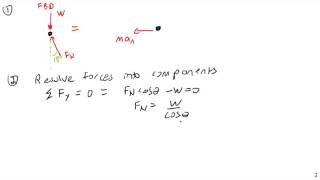 ①
FBD
W
=
man
18°
FN
② Resolve forces into components
Σ Fy = 0 = FN cosθ - W = 0
FN = W
cosθ
2